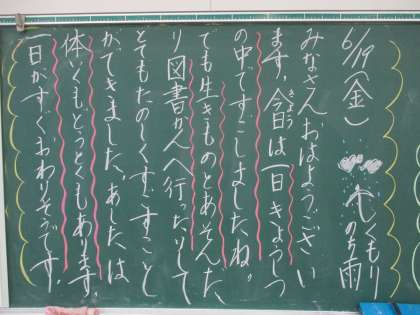 6/19(金) くもりのち雨
みなさんおはようござい
ます。今日は一日きょうしつ
きょう
の中ですごしましたね。
でも生きものとあそんだ
り図書かんへ行ったりして
とてもたのしくすごすこと
ができました。あしたは
体いくもどうとくもあります。
一日がすぐおわりそうです。